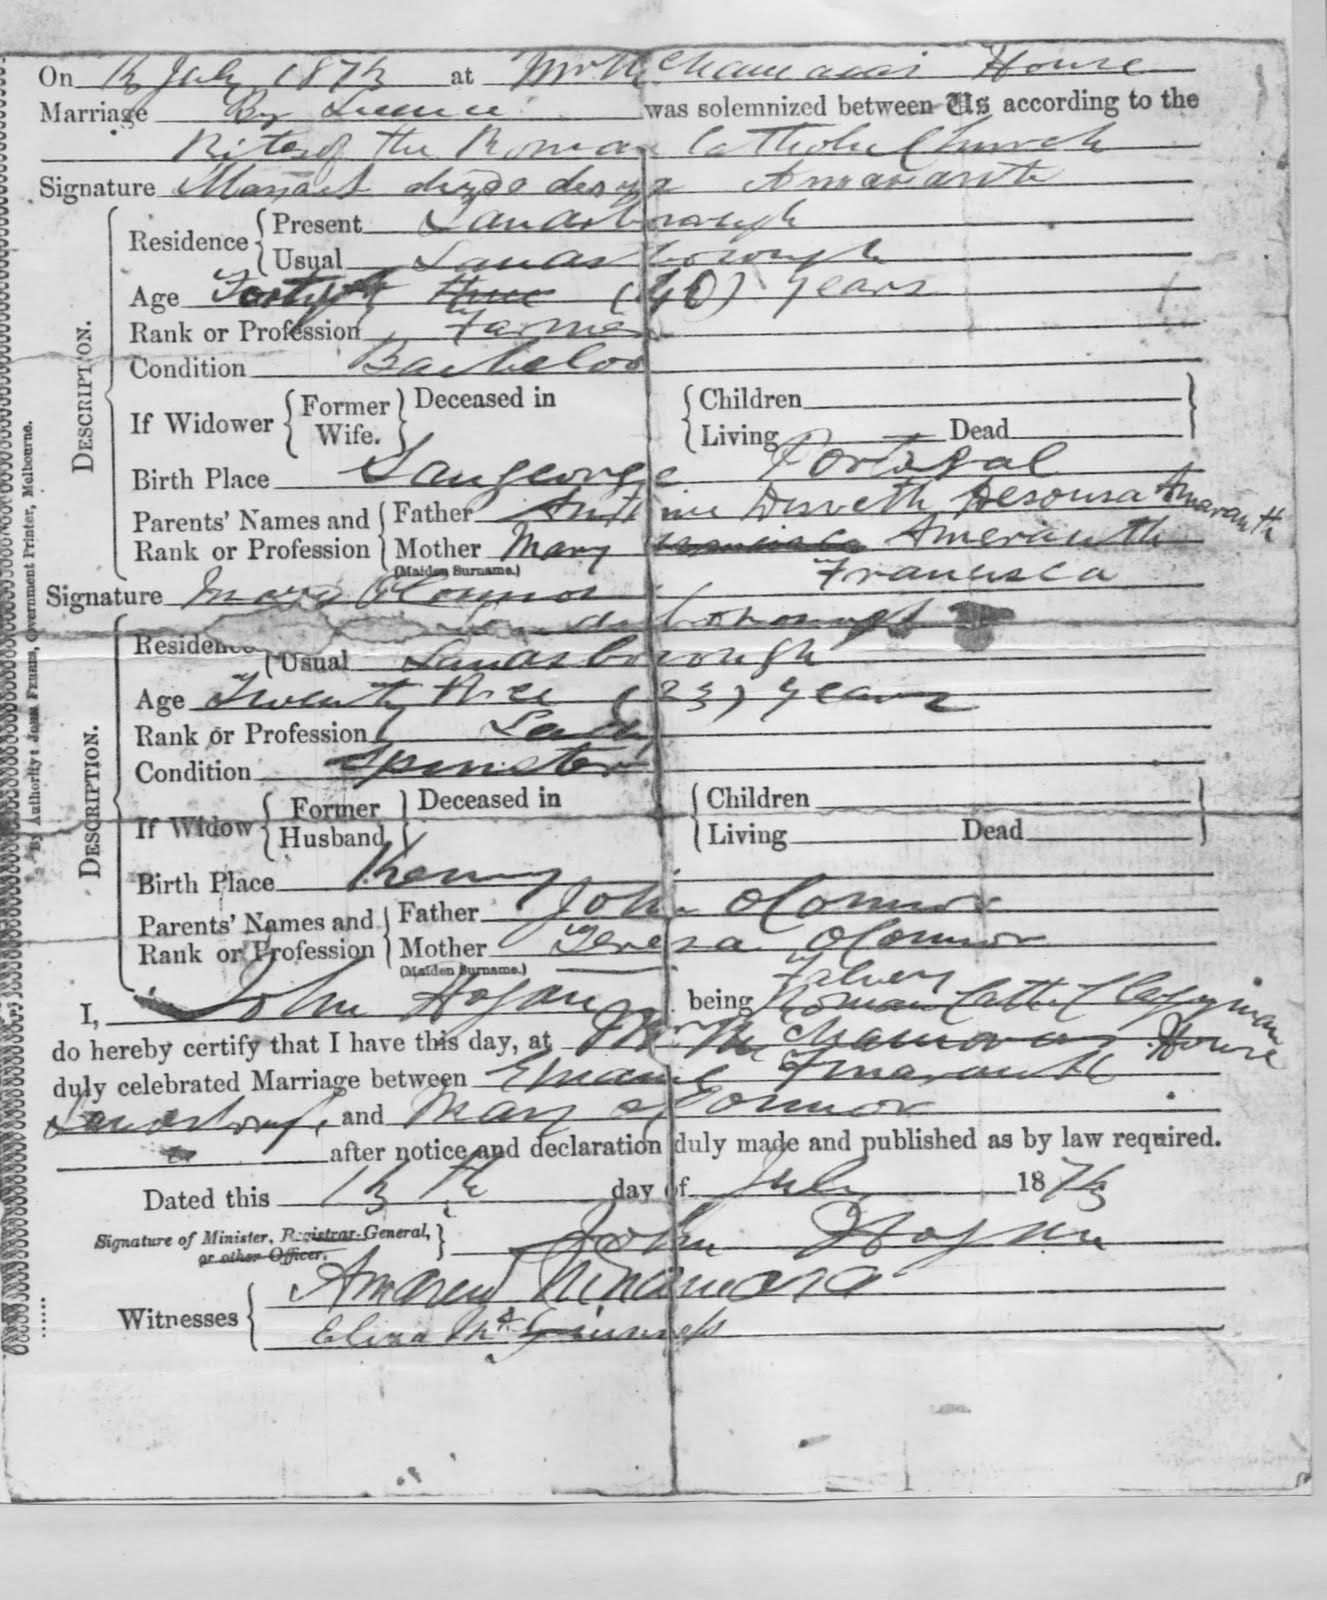 On 13 July 1873 at Mr Mc House
Marriage By License was solemnized between Us according to the
Rites of the Roman Catholic Church
Signature Amaranth
Residence { Present Landsborough
Usual Landsborough
Age Forty three (40) years
Rank or Profession Farmer
Condition Bachelor
If Widower { Former Wife. } Deceased in { Children
Living Dead
Birth Place San george Portogal
Parents' Names and Rank or Profession { Father Desousa Amaranth
Mother Mary Ameranth
(Maiden Surname.) Francisca
Signature Mary O'Connor
Residence Landsborough
Usual Landsborough
Age Twenty (23) years
Rank or Profession Lady
Condition Spinster
If Widow { Former Husband } Deceased in { Children
Living Dead
Birth Place Kerry
Parents' Names and Rank or Profession { Father John O'Connor
Mother Teresa O'Connor
(Maiden Surname.) Falvey
I, John Hogan being Roman Cath Clergyman
do hereby certify that I have this day, at Mr Mc House
duly celebrated Marriage between Amaranth
Landsboro, and Mary O'Connor
after notice and declaration duly made and published as by law required.
Dated this 13th day of July 1873
Signature of Minister, Registrar-General, or other Officer. } John Hogan
Witnesses { Andrew
Eliza McGuinness
DESCRIPTION.
DESCRIPTION.
By Authority: JOHN FERRES, Government Printer, Melbourne.